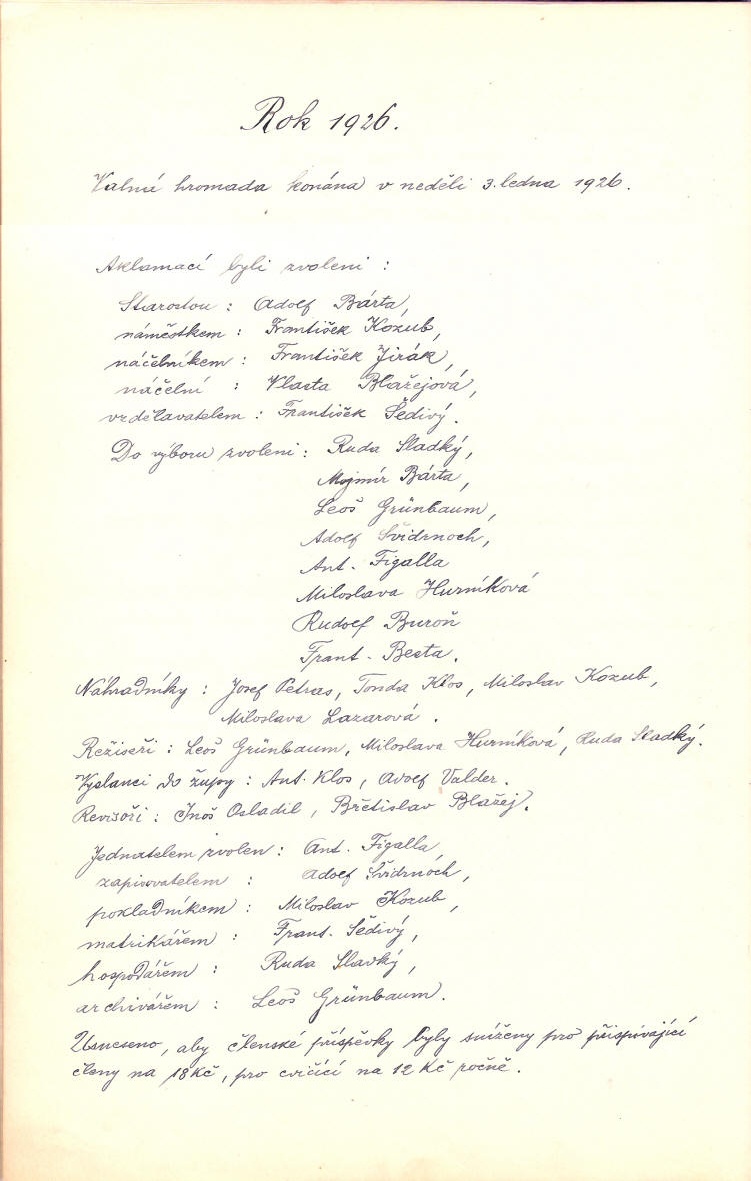 Rok 1926.
Valná hromada konána v neděli 3. ledna 1926.
Aklamací byli zvoleni :
Starostou : Adolf Bárta,
náměstkem : František Kozub,
náčelníkem : František Jirák,
náčelní : Vlasta Blažejová,
vzdělavatelem : František Šedivý.
Do výboru zvoleni : Ruda Sladký,
Mojmír Bárta,
Leoš Grünbaum,
Adolf Švidrnoch,
Ant. Figalla
Miloslava Hurníková
Rudolf Buroň
Frant. Besta.
Náhradníky : Josef Petras, Tonda Klos, Miloslav Kozub,
Miloslava Lazarová.
Režiseři : Leoš Grünbaum, Miloslava Hurníková, Ruda Sladký.
Vyslanci do župy : Ant. Klos, Adolf Valder.
Revisoři : Inoš Osladil, Břetislav Blažej.
Jednatelem zvolen : Ant. Figalla,
zapisovatelem : Adolf Švidrnoch,
pokladníkem : Miloslav Kozub,
matrikářem : Frant. Šedivý,
hospodářem : Ruda Slavký,
archivářem : Leoš Grünbaum.
Usneseno, aby členské příspěvky byly sníženy pro přispívající
členy na 18 Kč, pro cvičící na 12 Kč ročně.